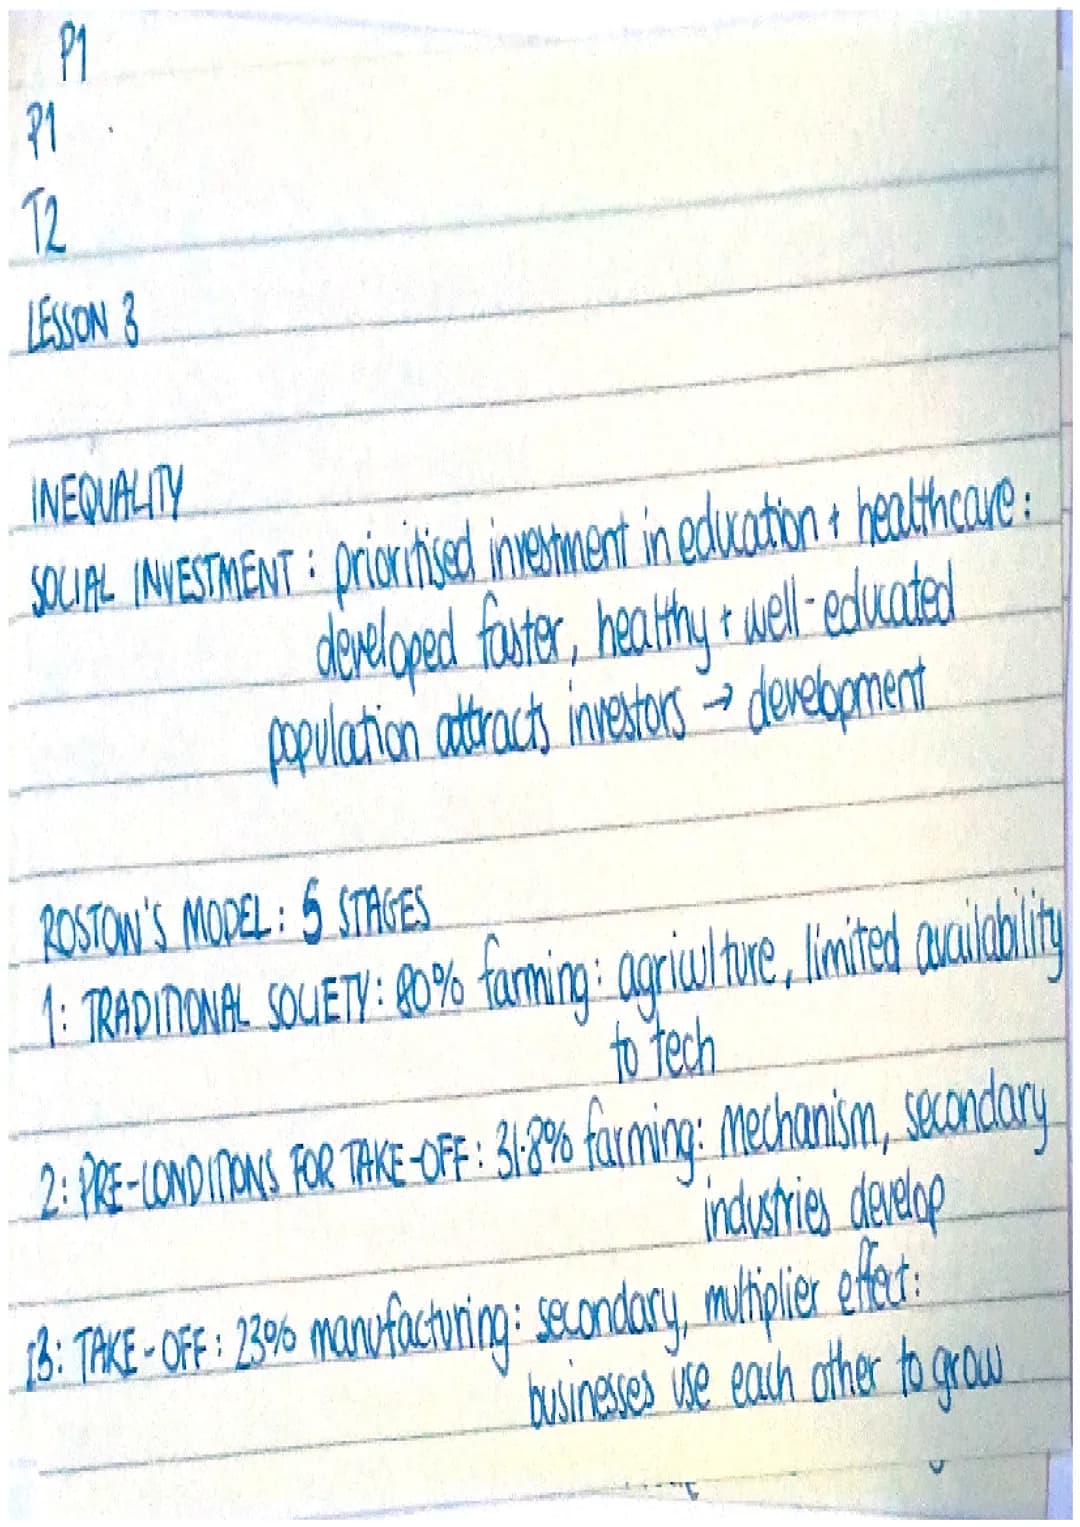 P1
P1
T2
LESSON 3
INEQUALITY
SOCIAL INVESTMENT : prioritised investment in education + healthcare :
developed faster, healthy + well-educated
population attracts investors → development
ROSTOW'S MODEL : 5 STAGES
1: TRADITIONAL SOCIETY : 80% farming : agriculture, limited availability
to tech
2: PRE-CONDITIONS FOR TAKE-OFF : 31.8% farming : mechanism, secondary
industries develop
3: TAKE-OFF : 23% manufacturing : secondary, multiplier effect :
businesses use each other to grow